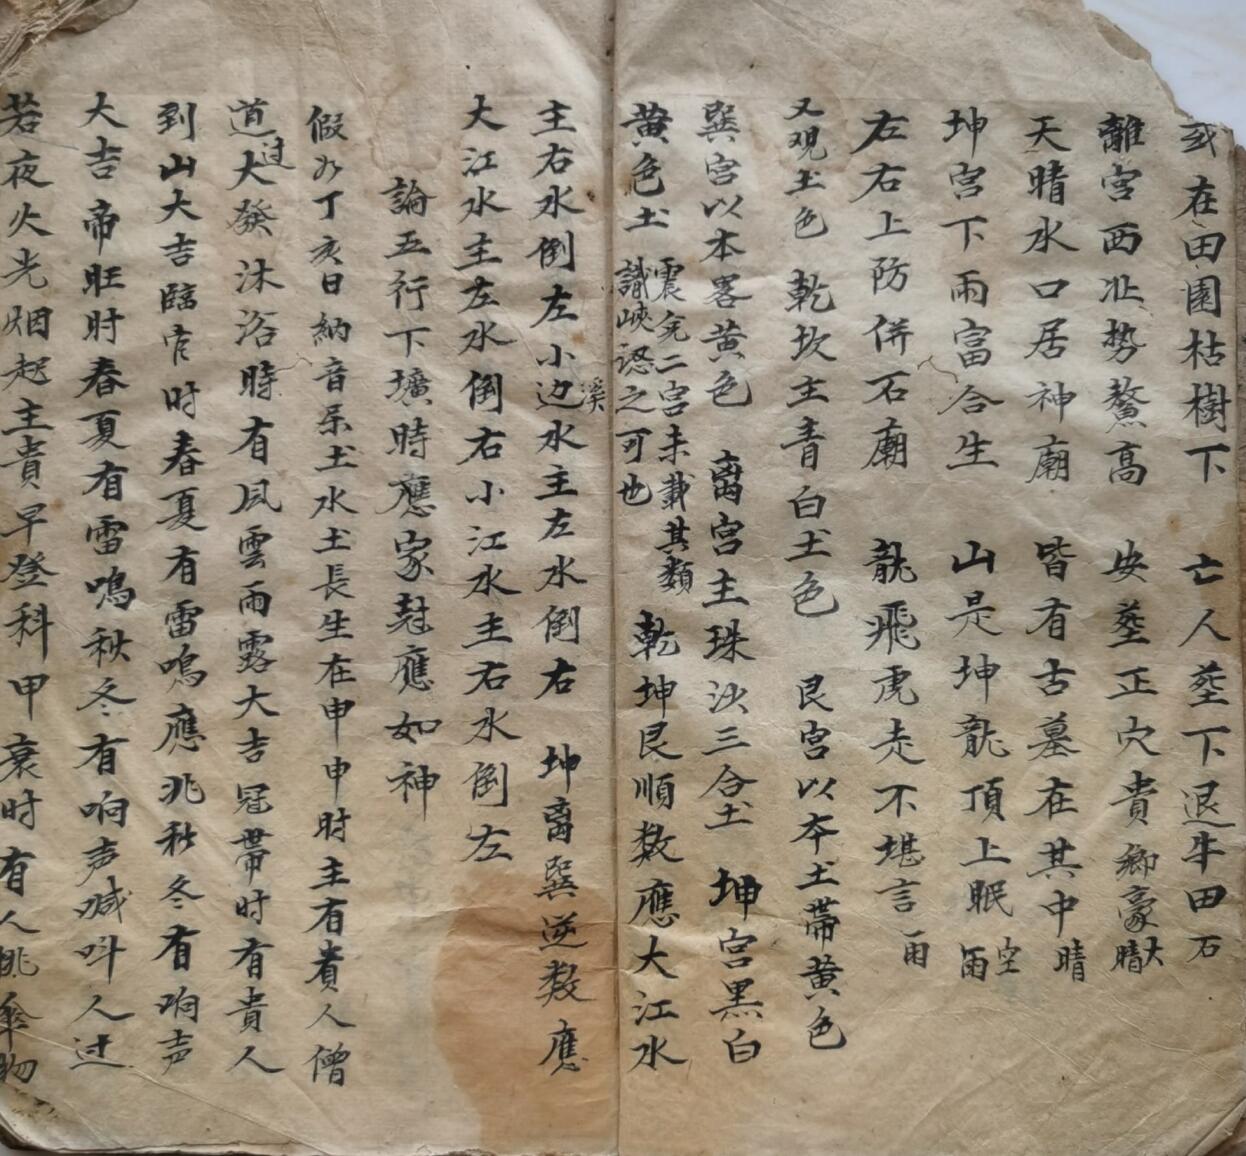 或在田園枯樹下　亡人塟下退牛田石
離宮西北势鰲高　安塟正穴貴鄉豪大晴
天晴水口居神廟　皆有古墓在其中晴
坤宮下雨富合生　山是坤龍頂上眠空雨
左右上防併石廟　龍飛虎走不堪言雨
又观土色　乾坎主青白土色　艮宮以本土帶黄色
巽宮以本畧黄色　离宮主珠沙三合土　坤宮黑白
黄色土　震兌二宮未載其類
識峽認之可也　乾坤艮順数應大江水
主右水倒左小溪边水主左水倒右　坤离巽逆数應
大江水主左水倒右小江水主右水倒左
論五行下壙時應家尅應如神
假如丁亥日納音屬土水土長生在申申时主有貴人僧
道过大發沐浴時有風雲雨露大吉冠帶时有貴人
到山大吉臨官时春夏有雷鳴應兆秋冬有响声
大吉帝旺时春夏有雷鳴秋冬有响声喊叫人过
若夜火光烟起主貴早登科甲衰时有人挑傘物